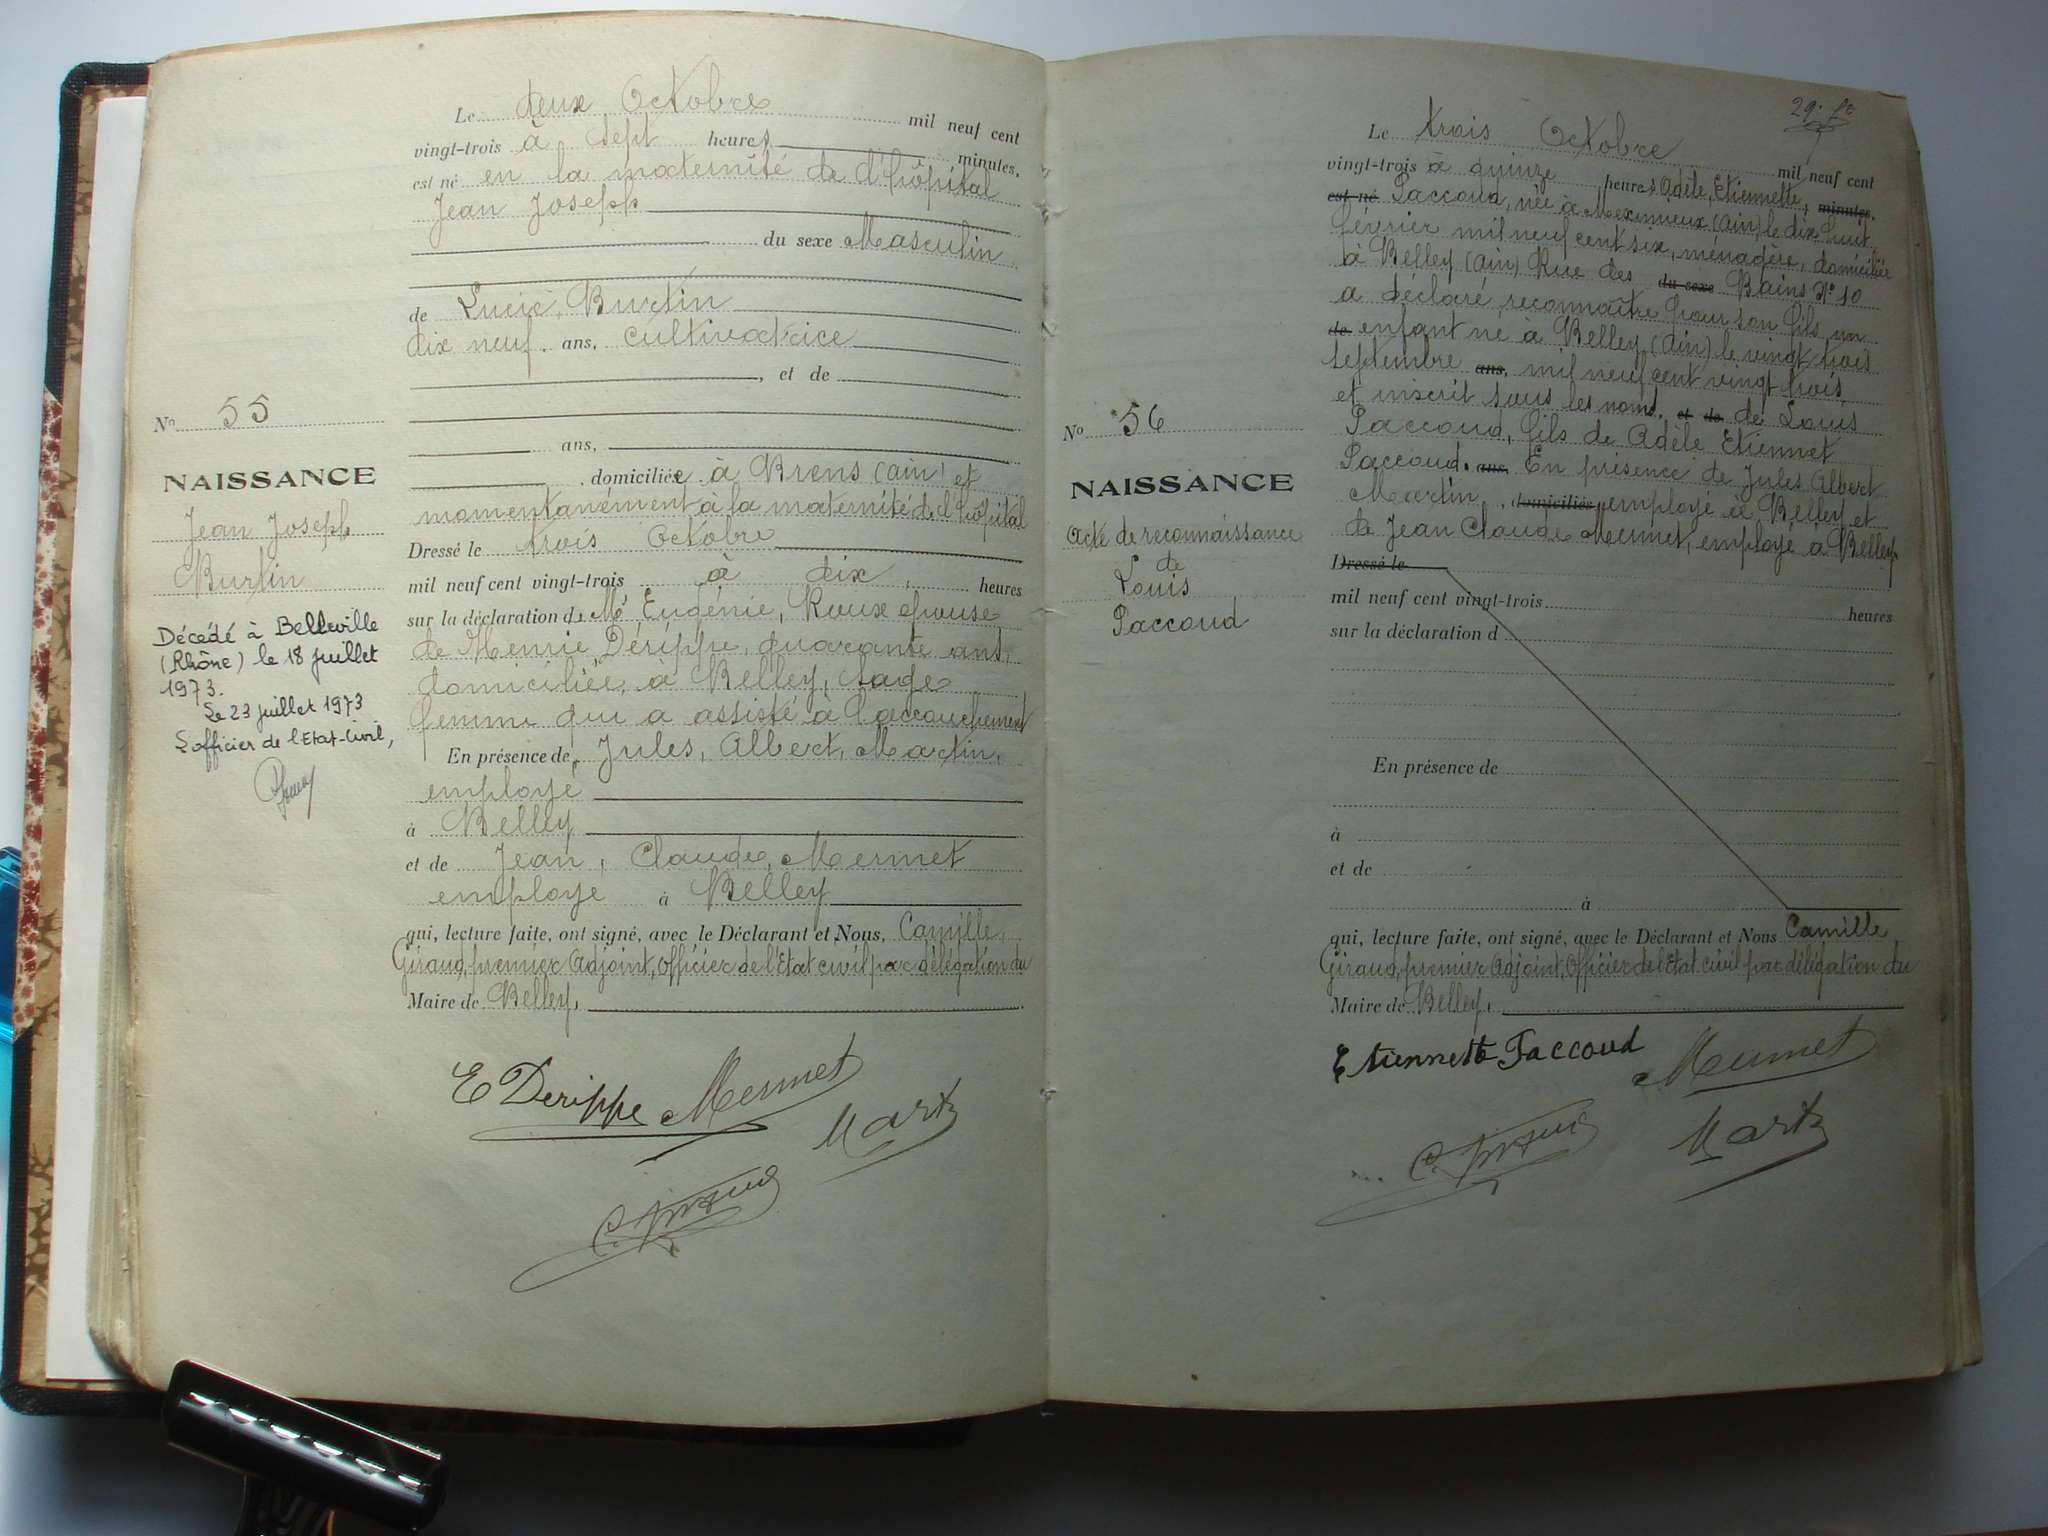 Le deux Octobre mil neuf cent
vingt-trois à sept heures minutes,
est né en la maternité de l'hôpital
Jean Joseph
du sexe Masculin
de Lucie, Burtin
dix neuf ans, cultivatrice
, et de
ans,
, domiciliée à Brens (ain) et
momentanément à la maternité de l'hôpital
Dressé le trois Octobre
mil neuf cent vingt-trois à dix heures
sur la déclaration de Me Eugénie, Roux épouse
de Henrie Dérippe, quarante ans,
domiciliée à Belley, sage
femme qui a assisté à l'accouchement
En présence de Jules, Albert, Martin,
employé
à Belley
et de Jean, Claude, Mermet
employé à Belley
qui, lecture faite, ont signé, avec le Déclarant et Nous, Camille,
Giraud, premier Adjoint, Officier de l'Etat civil par délégation du
Maire de Belley,
E Derippe Mermet
Martin
No 55
NAISSANCE
Jean Joseph
Burtin
Décédé à Belleville
(Rhône) le 18 juillet
1973.
Le 23 juillet 1973
L'officier de l'Etat-Civil,
29.
Le trois Octobre mil neuf cent
vingt-trois à quinze heures Adèle, Etiennette, minutes,
est né Paccoud, née à Meximieux (ain) le dix huit
février mil neuf cent six, ménagère, domiciliée
à Belley (ain) Rue des du sexe Bains N° 10
a déclaré reconnaître pour son fils un
de enfant né à Belley (ain) le vingt trois
septembre ans, mil neuf cent vingt trois
et inscrit sous les noms, et de de Louis
Paccoud, fils de Adèle Etiennet
Paccoud. ans. En présence de Jules Albert
Martin, domiciliés employé à Belley et
de Jean Claude Mermet, employé à Belley
Dressé le
mil neuf cent vingt-trois heures
sur la déclaration d
En présence de
à
et de
à
qui, lecture faite, ont signé, avec le Déclarant et Nous Camille
Giraud, premier Adjoint, Officier de l'Etat civil par délégation du
Maire de Belley,
Etiennette Paccoud Mermet
Martin
No 56
NAISSANCE
Acte de reconnaissance
de
Louis
Paccoud